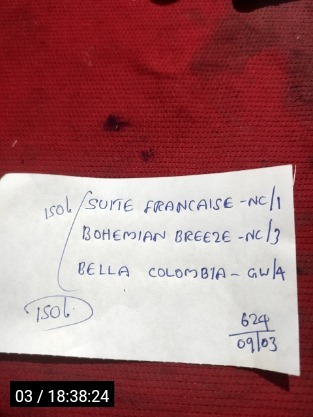 150L
SUITE FRANCAISE - NC/1
BOHEMIAN BREEZE - NC/3
BELLA COLOMBIA - GW/4
150L
624
09/03
03 / 18:38:24